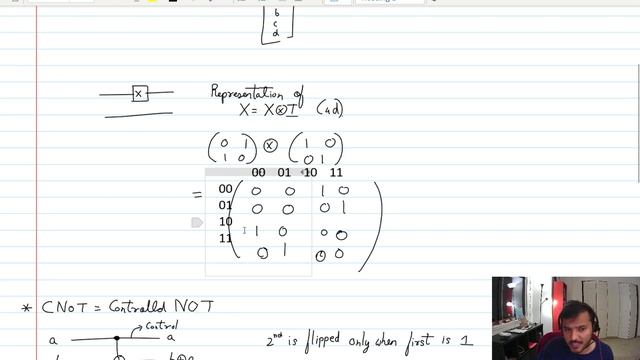 b
c
d
X
Representation of
X = X⊗I (4d)
(0 1 1 0) ⊗ (1 0 0 1)
00 01 10 11
= 00 0 0 1 0
01 0 0 0 1
10 1 0 0 0
11 0 1 0 0
* CNOT = Controlld NOT
control
a a
2nd is flipped only when first is 1